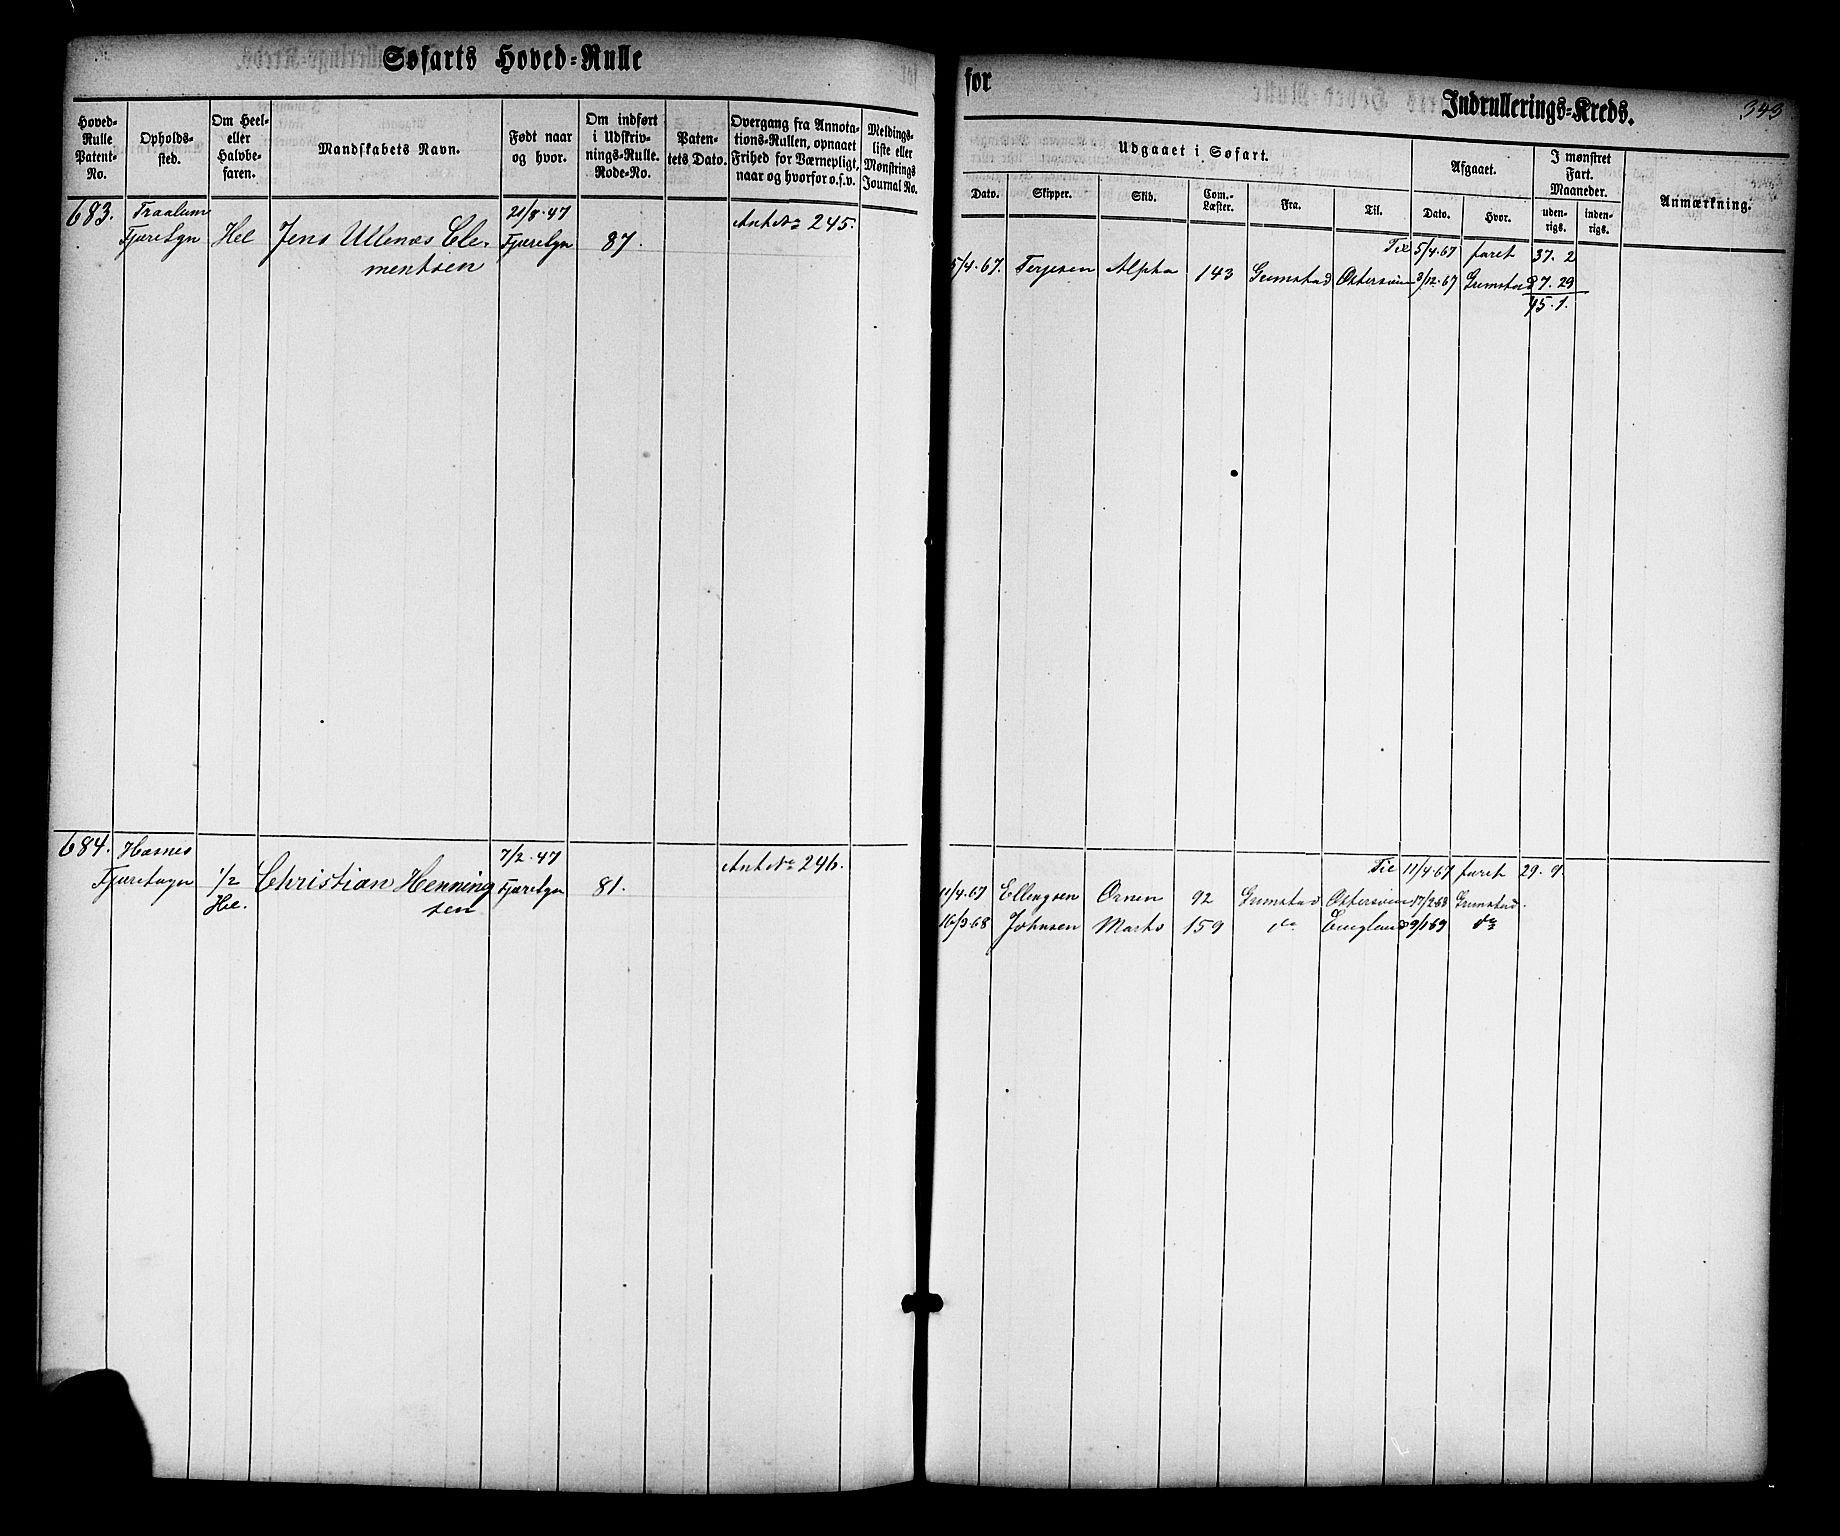 Søfarts Hoved-Rulle
Hoved-Rulle Patent-No.
Opholds-sted.
Om Heel- eller Halvbe-faren.
Mandskabets Navn.
Født naar og hvor.
Om indført i Udskriv-nings-Rulle. Rode-No.
Paten-tets Dato.
Overgang fra Annota-tions-Rullen, opnaaet Frihed for Værnepligt, naar og hvorfor o.s.v.
Meldings-liste eller Mønstrings Journal No.
683.
Fjæresgn
Hel
Jens Ullenæs Cle-
mentsen
21/8.47
Fjæresgn
87.
Ant No 245.
684.
Hasnes
½
Hel.
Christian Henning
sen
7/2.47
Fjæresgn
81.
Ant No 246.
for
Indrullerings-Kreds.
343
Udgaaet i Søfart.
Afgaaet.
I mønstret Fart. Maaneder.
Anmærkning.
Dato.
Skipper.
Skib.
Com.-Læster.
Fra.
Til.
Dato.
Hvor.
uden-rigs.
inden-rigs.
Til 5/4.67 faret 37. 2
5/4.67. Terjesen Alpha 143 Grimstad Østersøen 3/12.67 Grimstad 7. 29
45.1.
Til 11/4.67 faret 29. 9.
11/4.67 Ellingsen Ørnen 92 Grimstad Østersøen 17/2 68 Grimstad.
16/3.68 Johnsen 159 do England 9/1 69 do